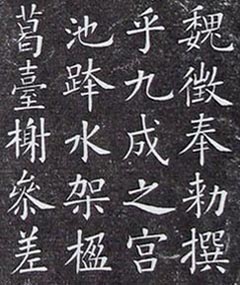 魏徵奉勑撰
乎九成之宫
池跨水架楹
葛臺榭參差